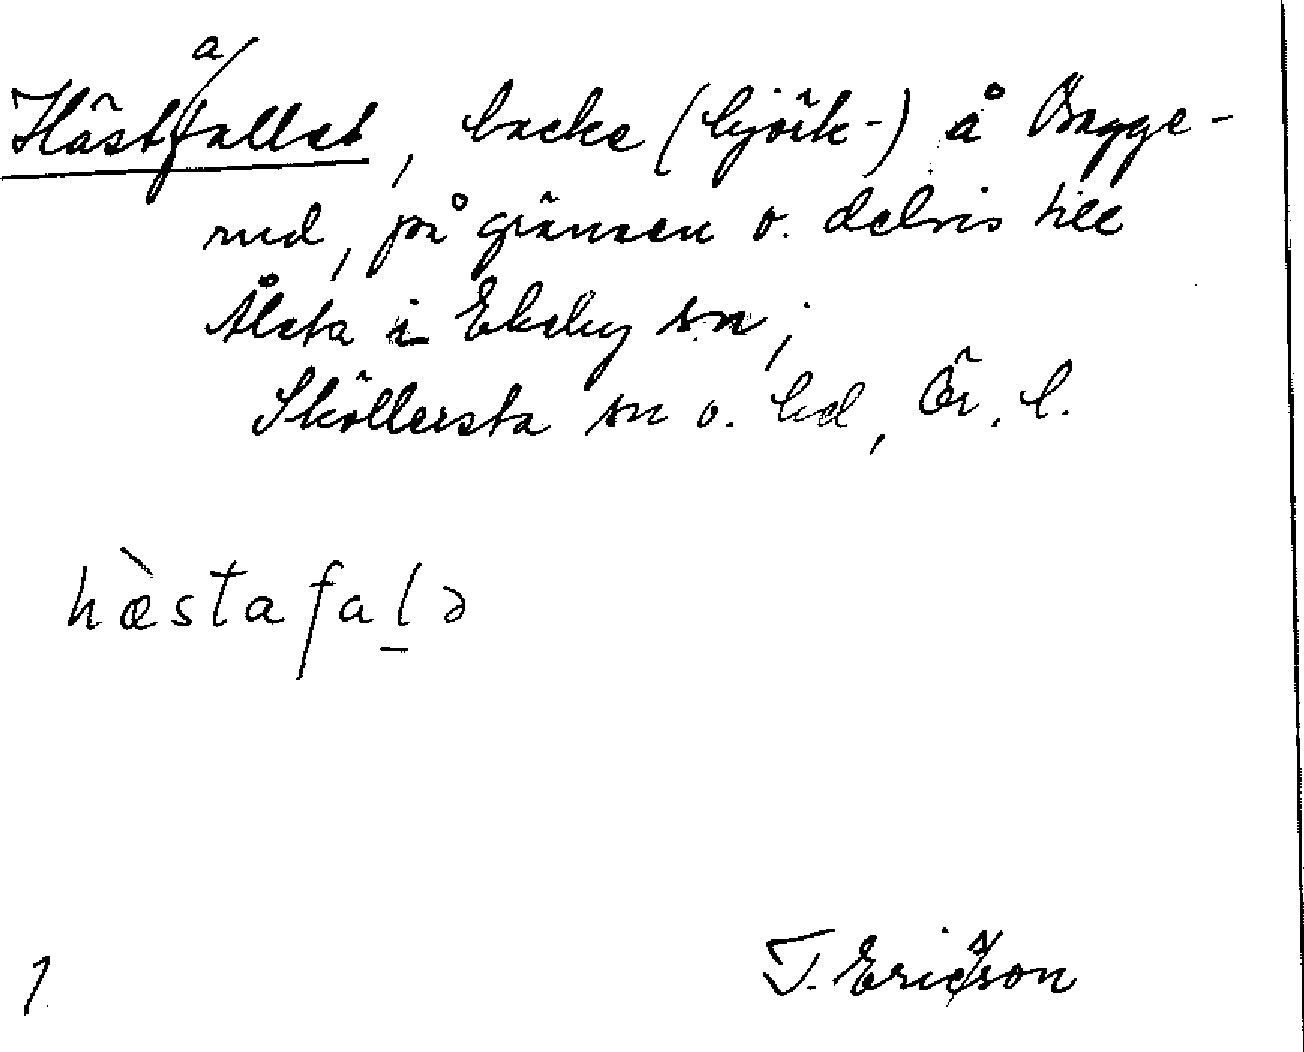 Hästafallet, backe (björk-) å Bagge-
rud, på gränsen o. delvis till
Ålsta i Ekeby sn;
Sköllersta sn o. hd, Ör. l.
hæ̀stafaḻə
1
T. Ericsson